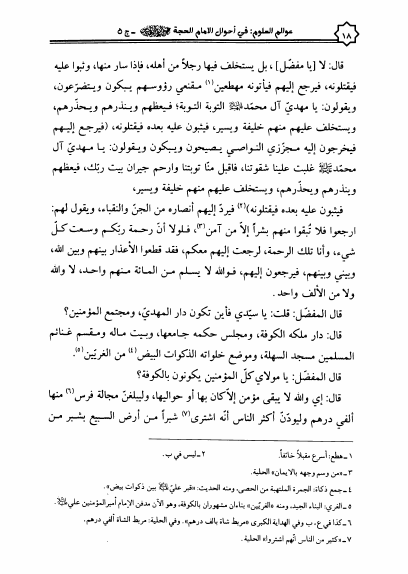 ١٨
عوالم العلوم: في أحوال الامام الحجة ﷺ - ج ٥
قال: لا [يا مفضّل]، بل يستخلف فيها رجلاً من أهله، فإذا سار منها، وثبوا عليه
فيقتلونه، فيرجع إليهم فيأتونه مهطعين(١) مقنعي رؤوسهم يبكون ويتضرّعون،
ويقولون: يا مهديّ آل محمّدﷺ التوبة التوبة؛ فيعظهم وينذرهم ويحذّرهم،
ويستخلف عليهم منهم خليفة ويسير، فيثبون عليه بعده فيقتلونه، (فيرجع إليهم
فيخرجون إليه مجزّزي النواصي يصيحون ويبكون ويقولون: يا مهديّ آل
محمّدﷺ غلبت علينا شقوتنا، فاقبل منّا توبتنا وارحم جيران بيت ربّك، فيعظهم
وينذرهم ويحذّرهم، ويستخلف عليهم منهم خليفة ويسير،
فيثبون عليه بعده فيقتلونه)(٢) فيردّ إليهم أنصاره من الجنّ والنقباء، ويقول لهم:
ارجعوا فلا تُبقوا منهم بشراً إلاّ من آمن(٣)، فلولا أنّ رحمة ربّكم وسعت كلّ
شيء، وأنا تلك الرحمة، لرجعت إليهم معكم، فقد قطعوا الأعذار بينهم وبين الله،
وبيني وبينهم، فيرجعون إليهم، فوالله لا يسلم من المائة منهم واحد، لا والله
ولا من الألف واحد.
قال المفضّل: قلت: يا سيّدي فأين تكون دار المهديّ، ومجتمع المؤمنين؟
قال: دار ملكه الكوفة، ومجلس حكمه جامعها، وبيت ماله ومقسم غنائم
المسلمين مسجد السهلة، وموضع خلواته الذكوات البيض(٤) من الغريّين(٥).
قال المفضّل: يا مولاي كلّ المؤمنين يكونون بالكوفة؟
قال: إي والله لا يبقى مؤمن إلاّ كان بها أو حواليها، وليبلغنّ مجالة فرس(٦) منها
ألفي درهم وليودّنّ أكثر الناس أنّه اشترى(٧) شبراً من أرض السبيع بشبر من
١ـ هطع: أسرع مقبلاً خائفاً. ٢ـ ليس في ب.
٣ـ «من وسم وجهه بالايمان» الحلية.
٤ـ جمع ذكاة: الجمرة الملتهبة من الحصى، ومنه الحديث: «قبر عليّ بين ذكوات بيض».
٥ـ الغري: البناء الجيد، ومنه «الغريّين» بناءان مشهوران بالكوفة، وهو الآن مدفن الإمام أميرالمؤمنين علي.
٦ـ كذا في ع، ب وفي الهداية الكبرى «مربط شاة بالف درهم». وفي الحلية: مربط الشاة ألفي درهم.
٧ـ «كثير من الناس أنّهم اشترواء» الحلية.